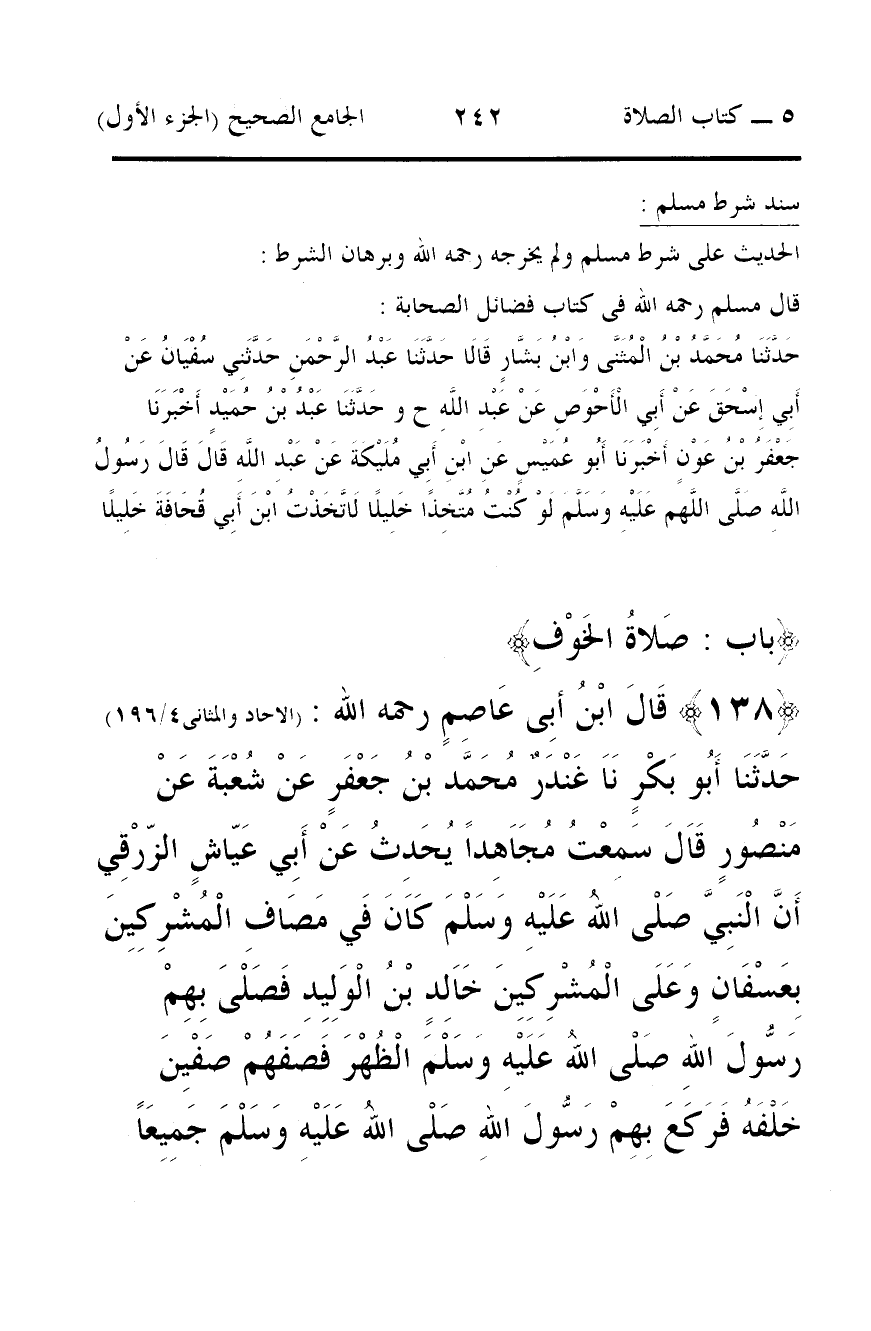 ٥ ــ كتاب الصلاة ٢٤٢ الجامع الصحيح (الجزء الأول)
سند شرط مسلم :
الحديث على شرط مسلم ولم يخرجه رحمه الله وبرهان الشرط :
قال مسلم رحمه الله فى كتاب فضائل الصحابة :
حَدَّثَنَا مُحَمَّدُ بْنُ الْمُثَنَّى وَابْنُ بَشَّارٍ قَالَا حَدَّثَنَا عَبْدُ الرَّحْمَنِ حَدَّثَنِي سُفْيَانُ عَنْ
أَبِي إِسْحَقَ عَنْ أَبِي الْأَحْوَصِ عَنْ عَبْدِ اللَّهِ ح و حَدَّثَنَا عَبْدُ بْنُ حُمَيْدٍ أَخْبَرَنَا
جَعْفَرُ بْنُ عَوْنٍ أَخْبَرَنَا أَبُو عُمَيْسٍ عَنِ ابْنِ أَبِي مُلَيْكَةَ عَنْ عَبْدِ اللَّهِ قَالَ قَالَ رَسُولُ
اللَّهِ صَلَّى اللَّهم عَلَيْهِ وَسَلَّمَ لَوْ كُنْتُ مُتَّخِذًا خَلِيلًا لَاتَّخَذْتُ ابْنَ أَبِي قُحَافَةَ خَلِيلًا
﴿باب : صَلاةُ الخَوْفِ﴾
﴿١٣٨﴾ قَالَ ابْنُ أبِى عَاصِمٍ رحمه الله : (الاحاد والمثانى٤/١٩٦)
حَدَّثَنَا أَبُو بَكْرٍ نَا غَنْدَرٌ مُحَمَّد بْنُ جَعْفَرٍ عَنْ شُعْبَةَ عَنْ
مَنْصُورٍ قَالَ سَمِعْتُ مُجَاهِداً يُحَدِثُ عَنْ أَبِي عَيّاشٍ الزّرْقِي
أَنَّ الْنَبِيَّ صَلْى اللهُ عَلَيْهِ وَسَلْمَ كَانَ فَي مَصَافِ الْمُشْرِكِينَ
بِعَسْفَانٍ وَعَلَى الْمُشْرِكِينَ خَالَدٍ بْنُ الْوَلِيدِ فَصَلْىَ بِهِمْ
رَسُّولَ اللهِ صَلْى اللهُ عَلَيْهِ وَسَلْمَ الْظُهْرَ فَصَفَهُمْ صَفْينَ
خَلْفَهُ فَرَكَعَ بِهِمْ رَسُّولَ اللهِ صَلْى اللهُ عَلَيْهِ وَسَلْمَ جَمِيعَاً